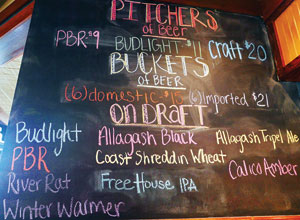 PITCHERS
of Beer
PBR $9 BUDLIGHT $11 Craft $20
BUCKETS
OF BEER
(6) domestic $15 (6) Imported $21
ON DRAFT
Budlight Allagash Black Allagash Tripel Ale
PBR Coast Shredd in Wheat Calico Amber
River Rat Free House IPA
Winter Warmer